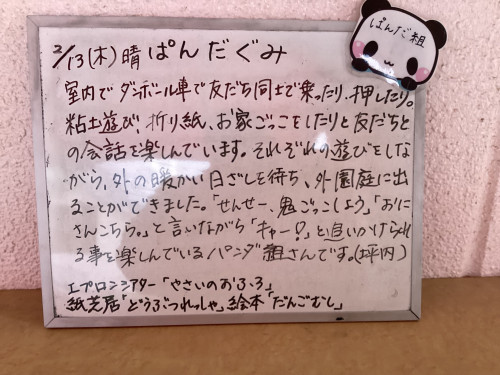 2/13(木) 晴 ぱんだぐみ
ぱんだ組
室内でダンボール車で友だち同士で乗ったり、押したり。
粘土遊び、折り紙、お家ごっこをしたりと友だちと
の会話を楽しんでいます。それぞれの遊びをしな
がら、外の暖かい日ざしを待ち、外園庭に出
ることができました。「せんせー、鬼ごっこしよう」「おに
さんこちら。」と言いながら「キャー!」と追いかけられ
る事を楽しんでいるパンダ組さんです。(坪内)
エプロンシアター「やさいのおふろ」
紙芝居「どうぶつれっしゃ」絵本「だんごむし」